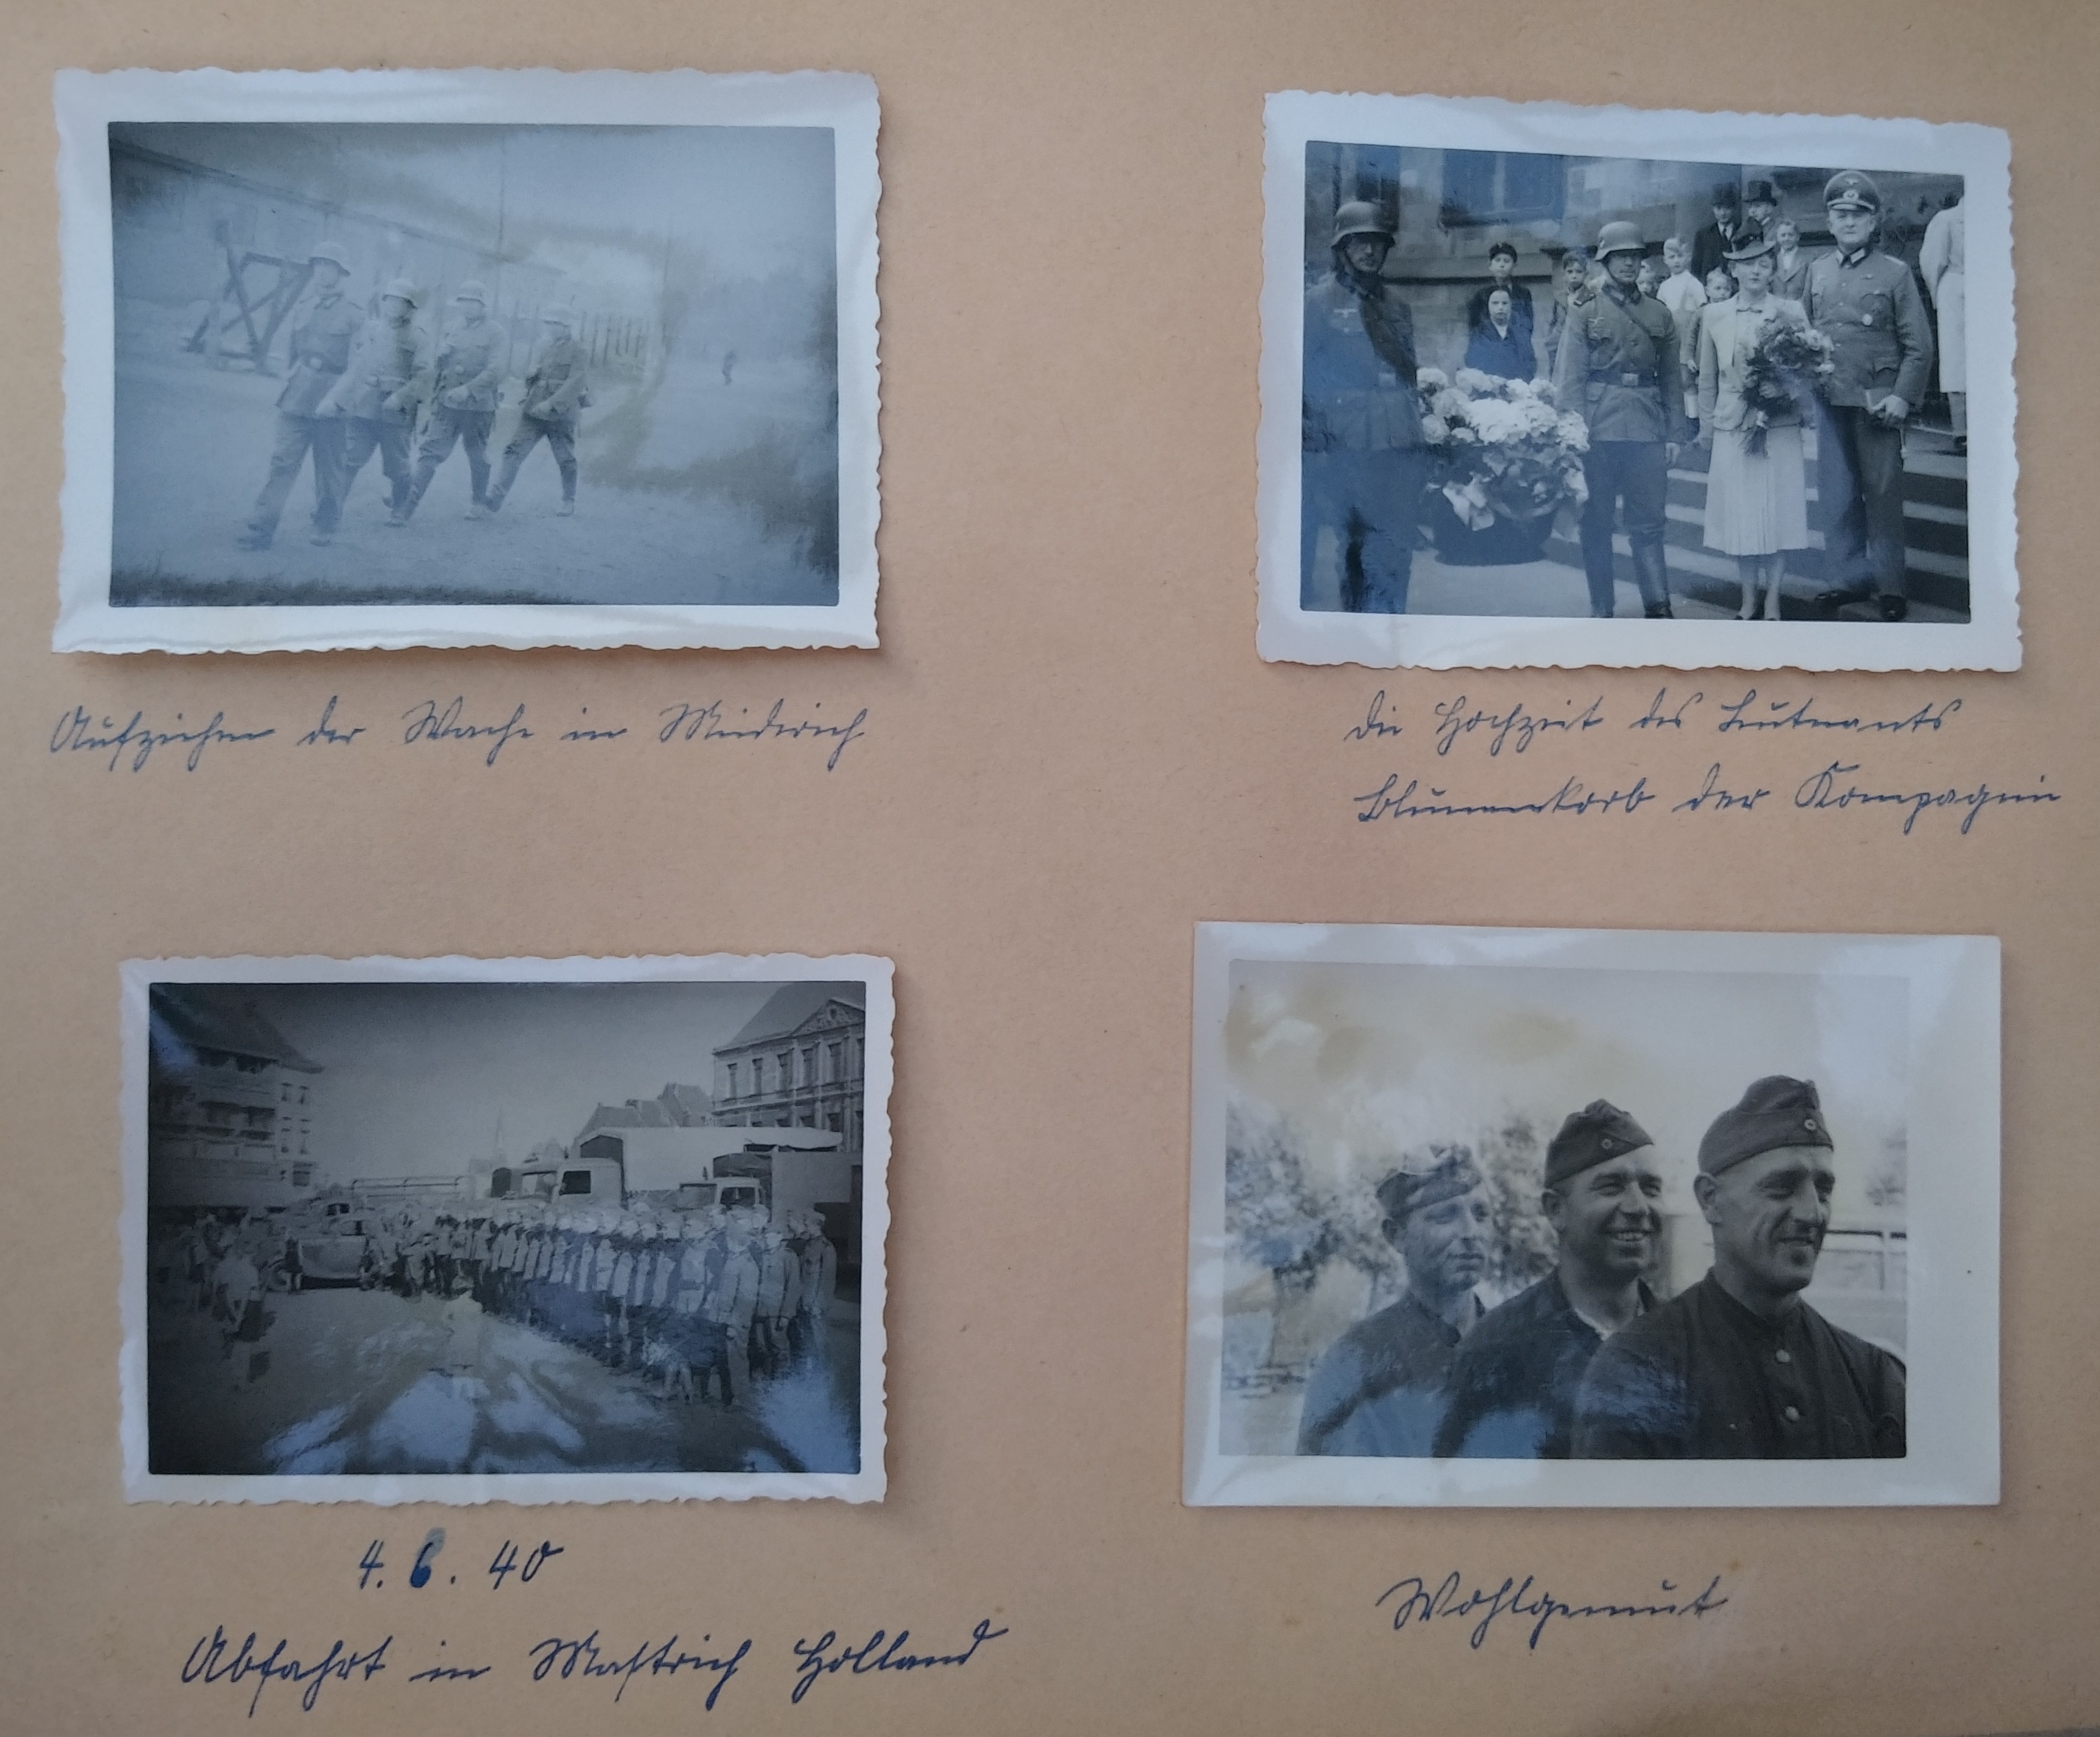 Aufziehen der Wache in Meiderich
Die Hochzeit des Leutnants
Blumenkorb der Kompagnie
4. 6. 40
Abfahrt in Mastrich Holland
Wohlgemut